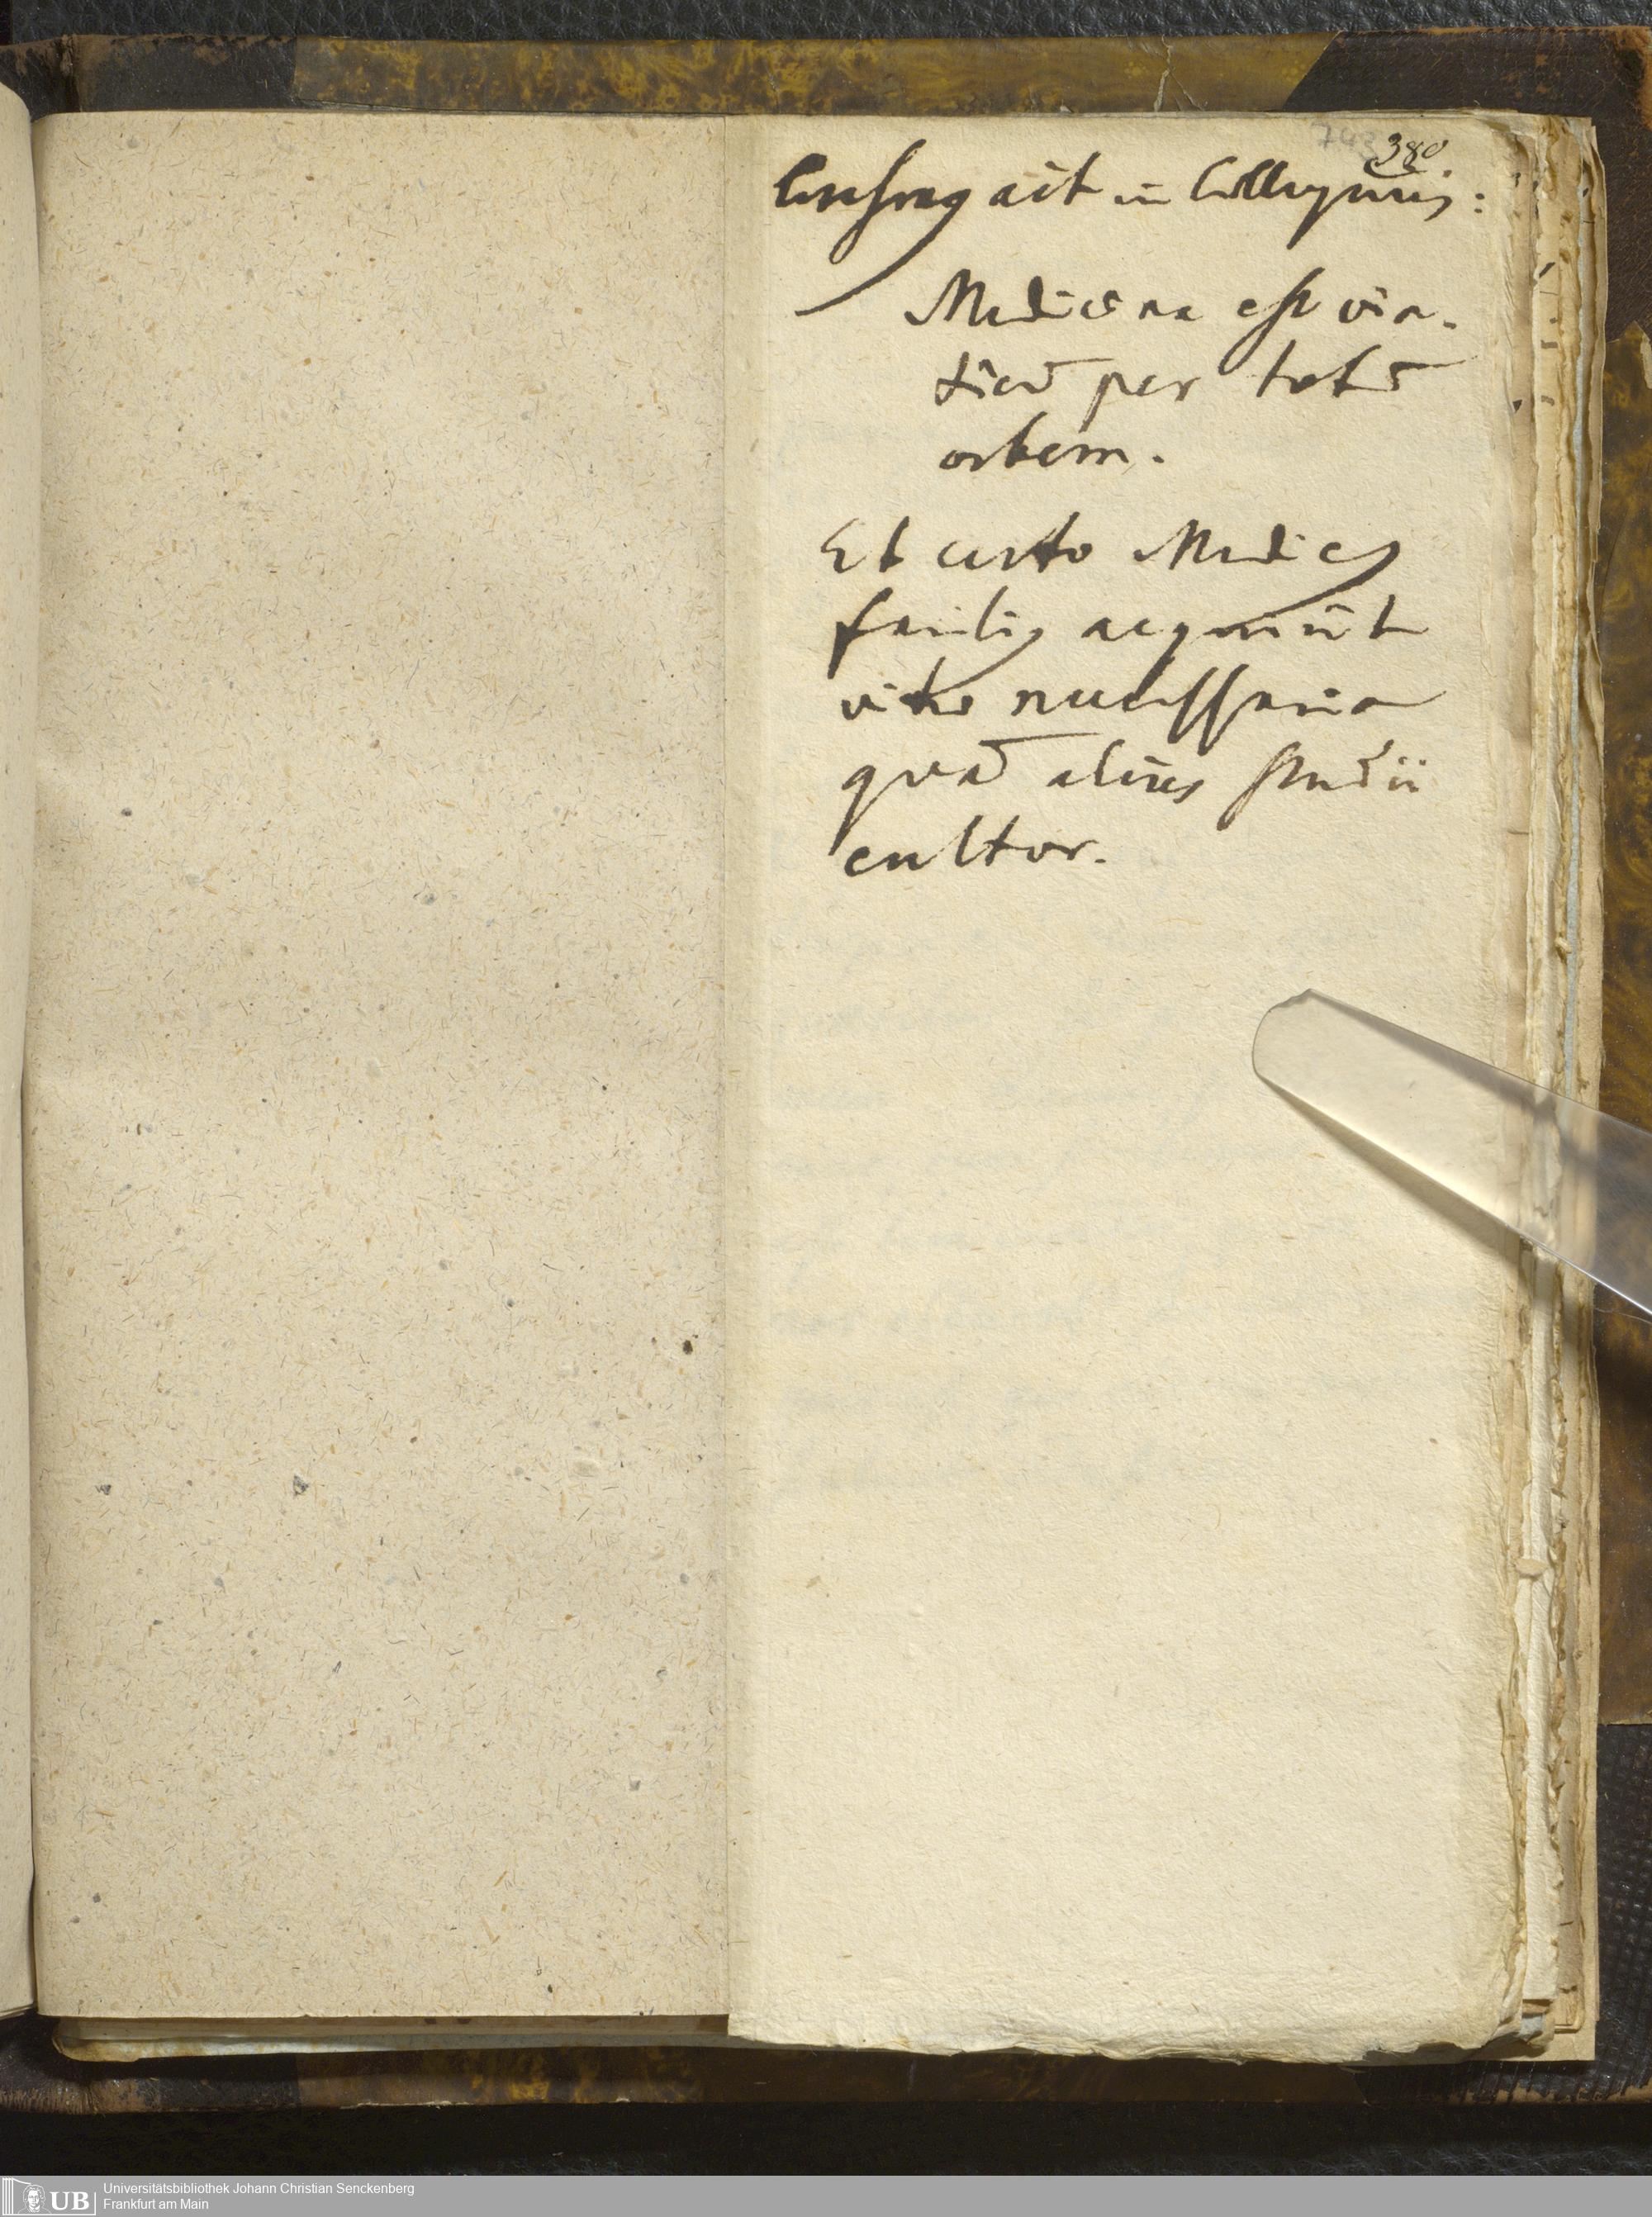 380
ait in Collegiis:
Medicina est via-
ticū per totū
orbem.
Et certo Medicus
facilius acquirit
vitæ necessaria
quā alius studii
cultor.
UB Universitätsbibliothek Johann Christian Senckenberg
Frankfurt am Main